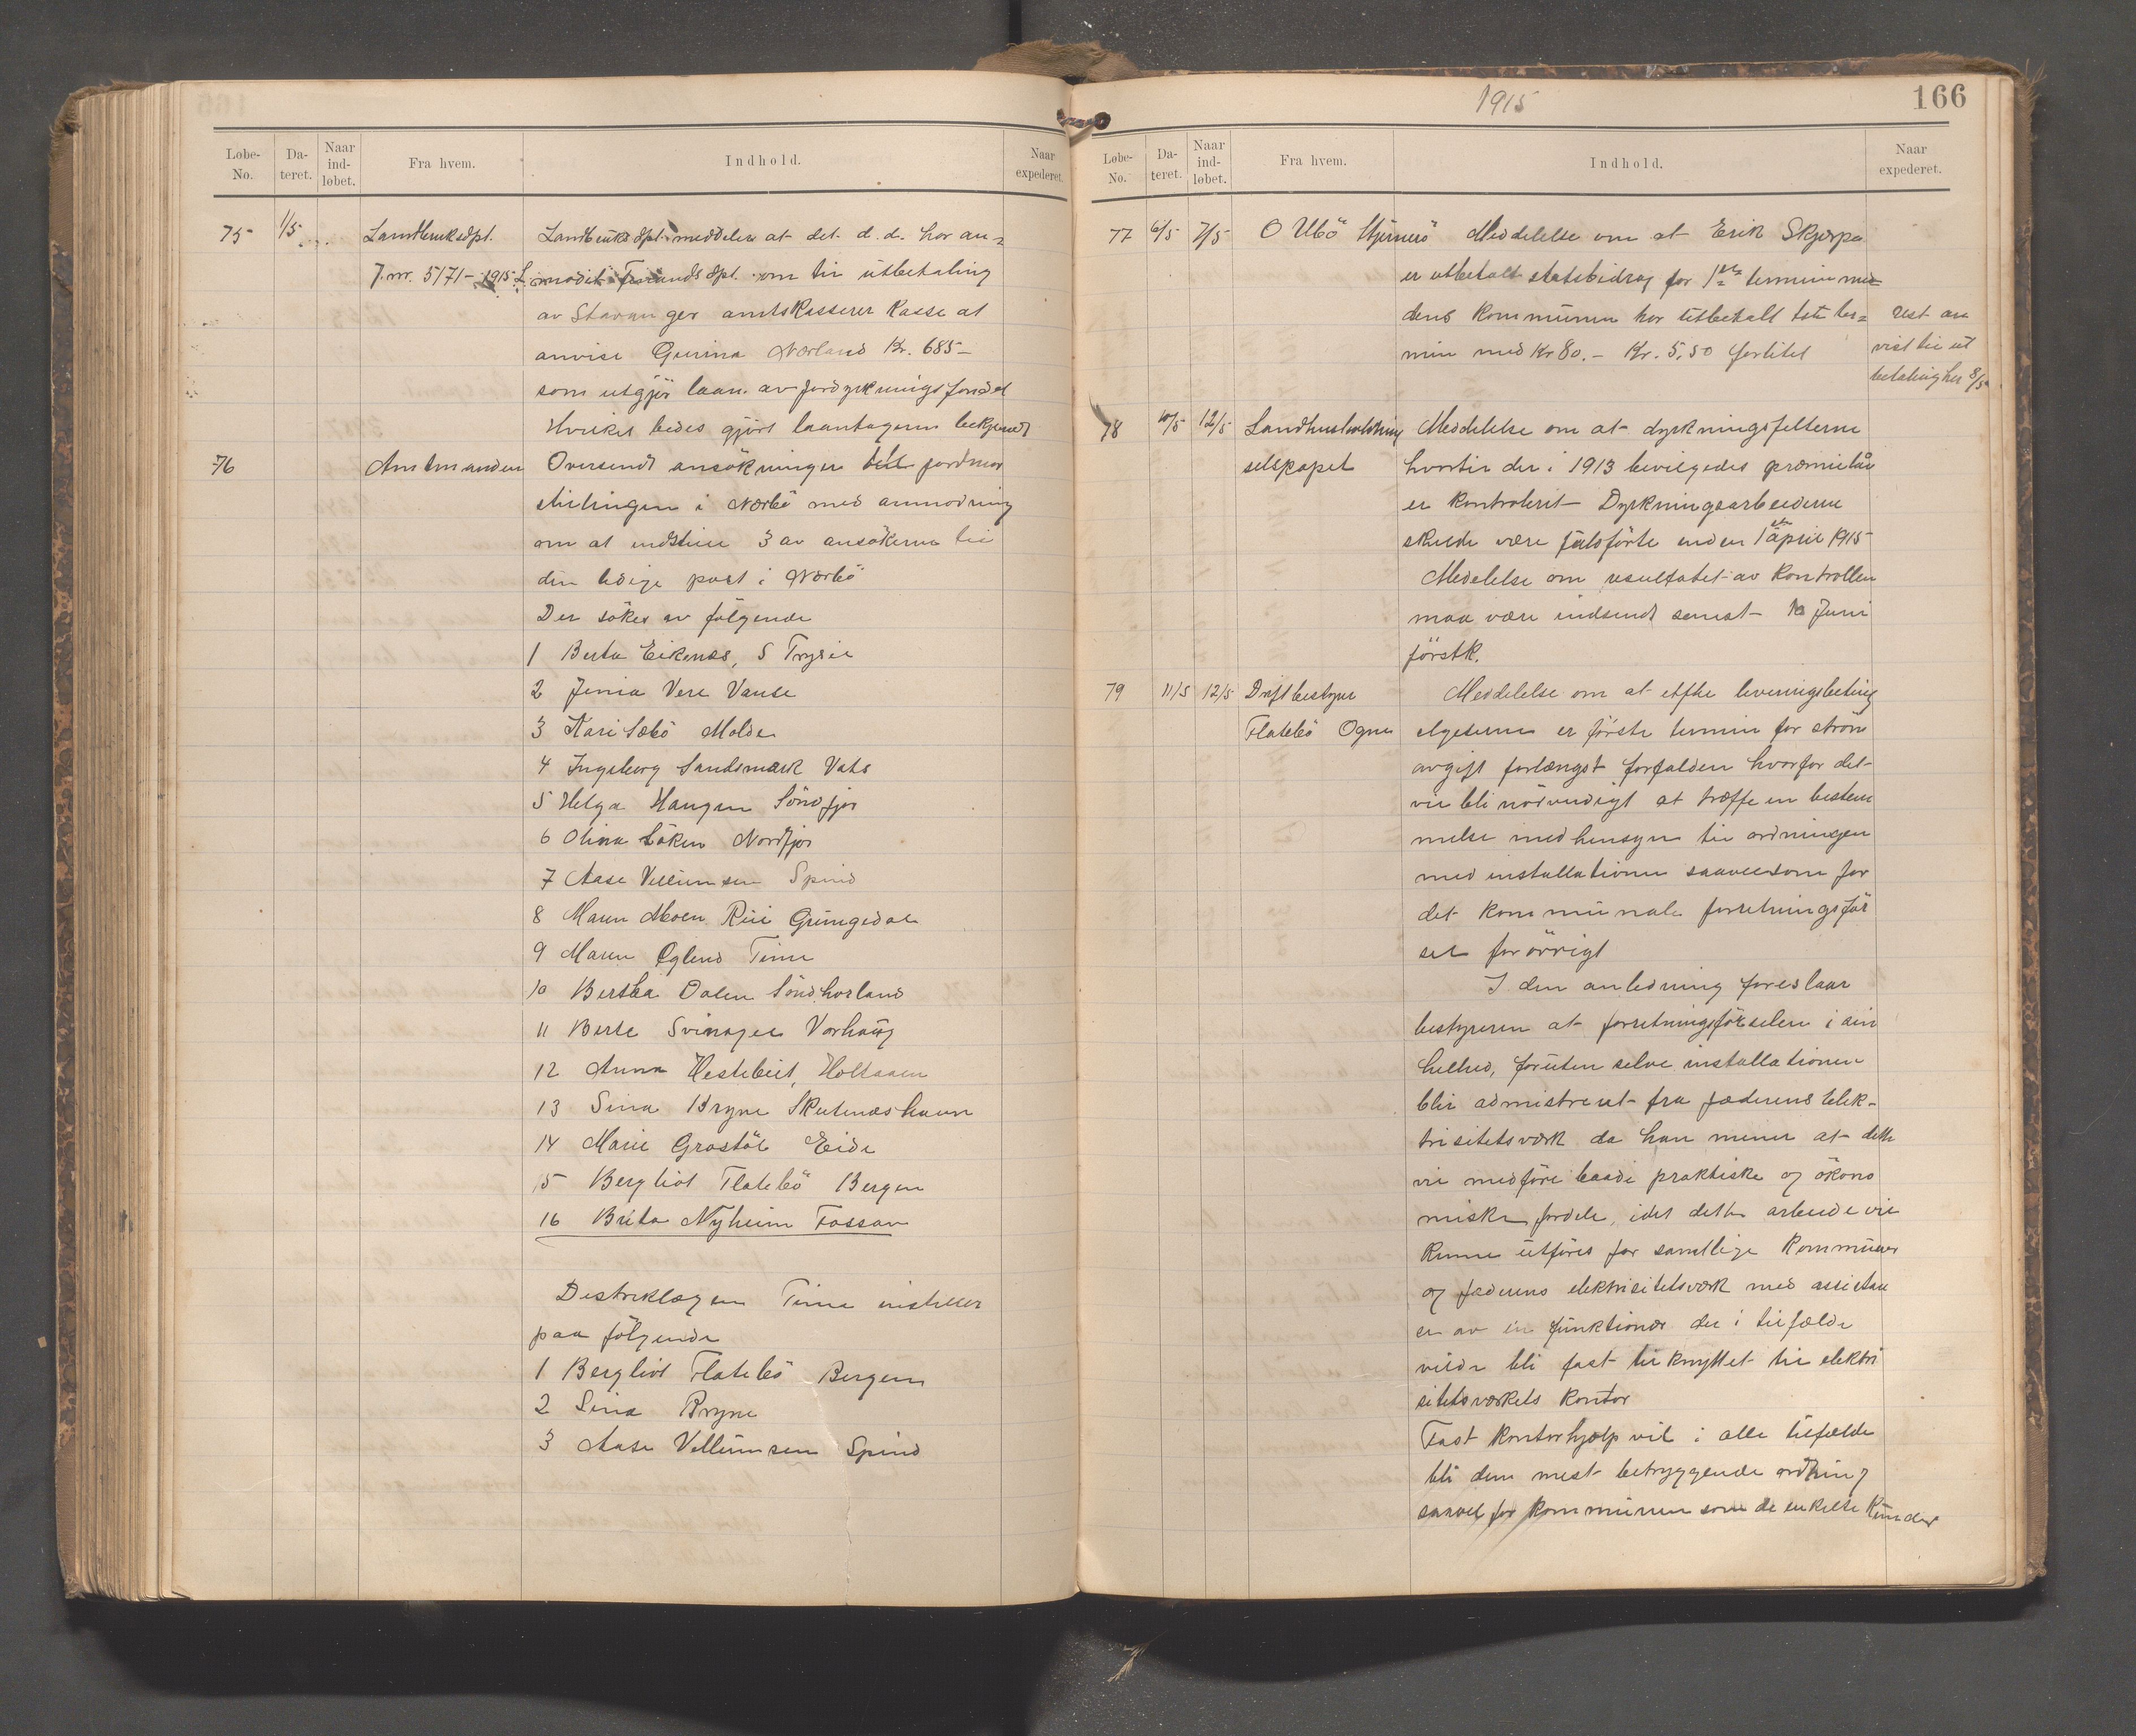 Løbe-No. Da-teret. Naar ind-løbet. Fra hvem. Indhold. Naar expederet.
75 1/5 Landbruksdpt. Landbruksdpt. meddeler at det d.d. har an=
J.nr. 5171-1915 L. modet Finansdpt. om til utbetaling
av Stavanger amtskasserer kasse at
anvise Gurina Nærland Kr. 685-
som utgjør laan av jorddyrkningsfondet
Hvilket bedes gjort laantageren bekjendt
76 Amtmanden Oversendt ansökninger til jordmor
stillingen i Nærbö med anmodning
om at indstille 3 av ansökerne til
den ledige post i Nærbö
Der sökes av fölgende
1 Berta Eikenæs, S Trysil
2 Jenia Vere Vanse
3 Kari Sæbö Molde
4 Ingeborg Sandsmark Vats
5 Helga Haugen Söndfjor
6 Olina Löken Nordfjor
7 Aase Vellumsen Spind
8 Maren Moen Rui Grungedal
9 Maren Øglend Time
10 Bertha Dalen Söndhorland
11 Berte Svinager Varhaug
12 Anna Hestebeit, Holtaalen
13 Sina Bryne Skutenæshavn
14 Marie Grastöl Eide
15 Bergliot Flatebö Bergen
16 Brita Nyheim Fossan
Destriklægen Time instiller
paa fölgende
1 Bergliot Flatebö Bergen
2 Sina Bryne
3 Aase Vellumsen Spind
1915
166
Løbe-No. Da-teret. Naar ind-løbet. Fra hvem. Indhold. Naar expederet.
77 6/5 7/5 O Ubö Meddelelse om at Erik Skjærpe
er utbetalt statsbidrag for 1ste termin me=
dens kommunen har utbetalt 1ste ter= rest an
min med Kr 80.- Kr. 5,50 forlitet vist til ut
betaling her 8/5
78 10/5 12/5 Landhusholdning Meddelelse om at dyrkningsfelterne
selskapet hvortil der i 1913 bevilgedes præmielån
er kontrolerit Dyrkningsarbeiderne
skulde være fuldförte inden 1ste april 1915
Medelelse om resultatet av kontrollen
maa være indsendt senest Juni
förstk.
79 11/5 12/5 Driftbestyrer Meddelelse om at efter leveringsbeting
Flatebö Ogna elgeserne er förste termin for ström
avgift forlængst forfalden hvorfor det
vil bli nödvendigt at træffe en bestem
melse med hensyn til ordningen
med installationen saavelsom for
det kommunale forretningsför
sel forövrigt
I den anledning foreslaar
bestyreren at forretningsförselen i sin
helhed, foruten selve installationen
blir admistrert fra Jæderens elek-
trisitetsværk da han mener at dette
vil medföre baade praktiske og ökono
miske fordele, idet dette arbeide vil
kunne utföres for samtlige kommuner
og Jæderens elektrisitetsværk med assistan
se av en funktionær der i tilfælde
vilde bli fast tilknyttet til elektri
sitetsværkets kontor
Fast kontorhjælp vil i alle tilfælde
bli den mest betryggende ordning
saavel for kommunen som de enkelte kunder